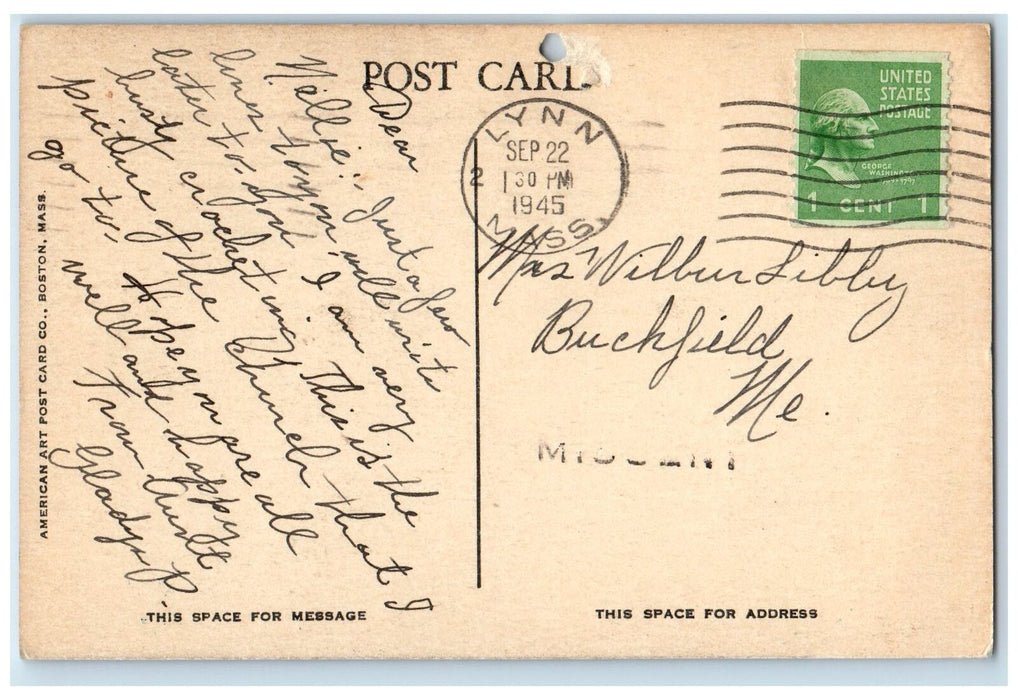 POST CARD
Dear
Nellie:- Just a few
lines thym will write
later to you. I am very
busy crocheting. This is the
picture of the Church that I
go to. Hope you are all
well and happy.
From Aunt
Gladys P.
LYNN
2
SEP 22
1 30 PM
1945
MASS.
UNITED
STATES
POSTAGE
GEORGE
WASHINGTON
1 CENT 1
Mrs Wilbur Libby
Buckfield
Me.
MISSENT
AMERICAN ART POST CARD CO., BOSTON, MASS.
THIS SPACE FOR MESSAGE
THIS SPACE FOR ADDRESS